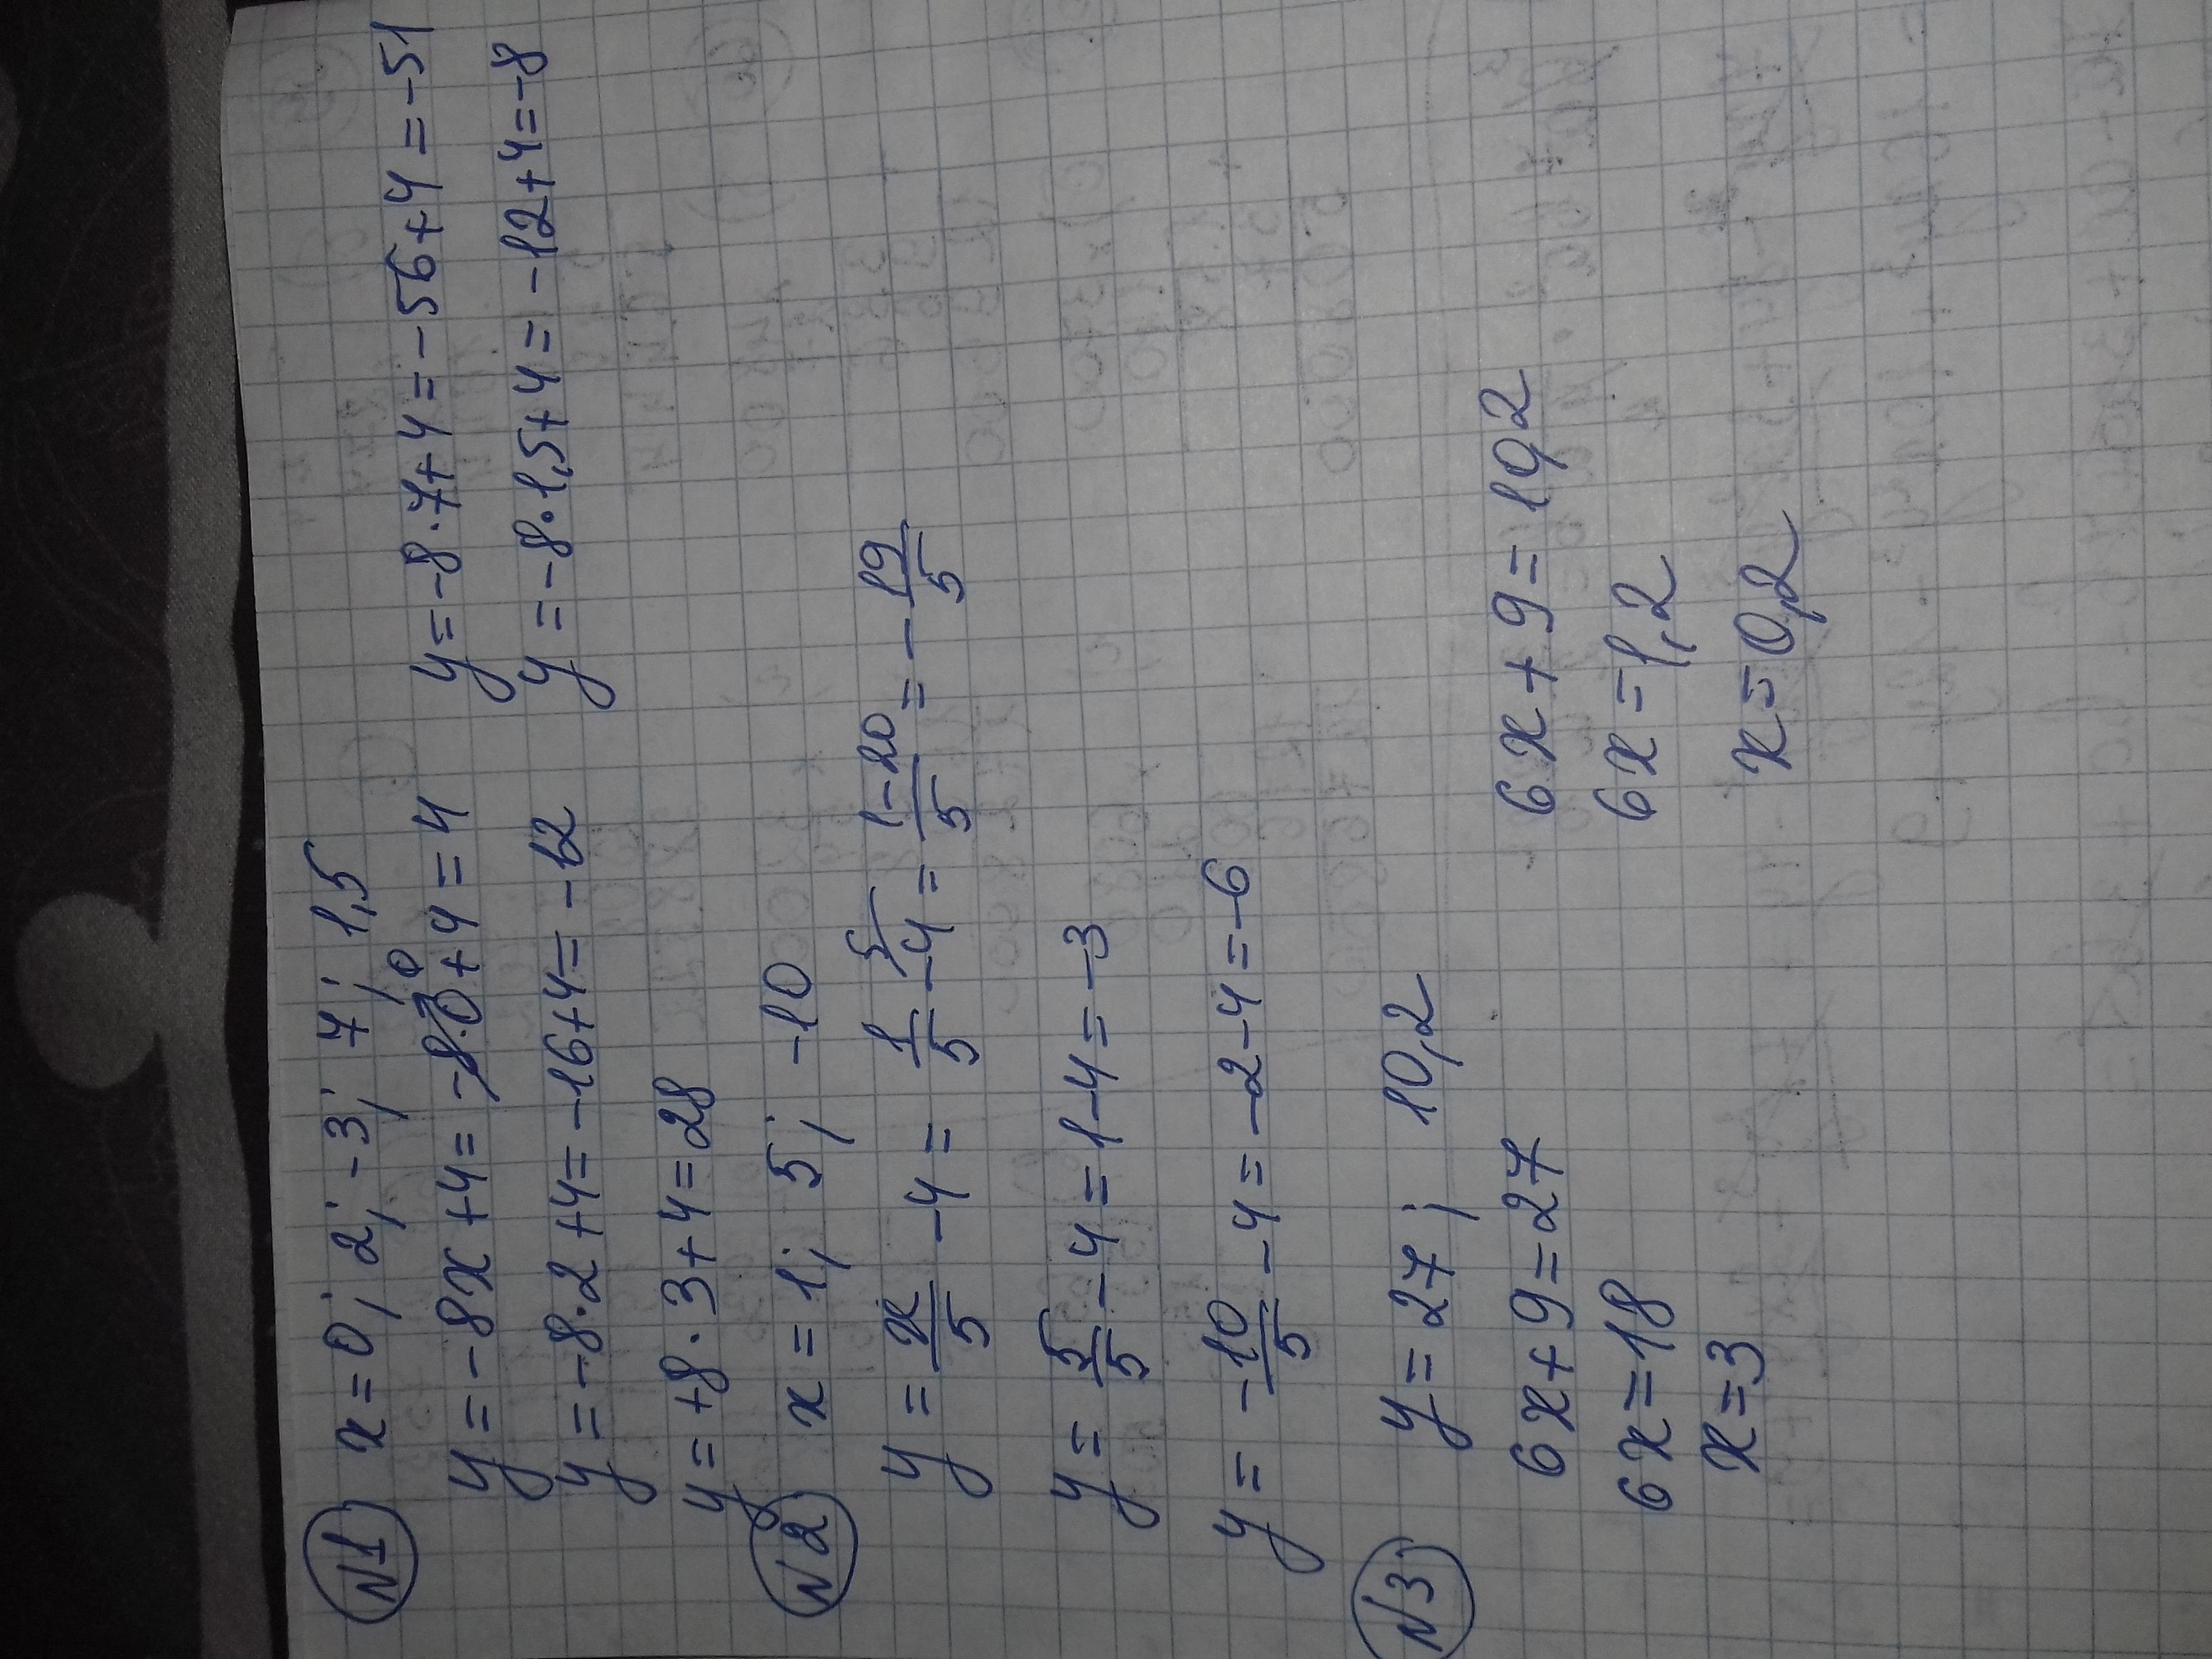 N1 x = 0; 2; -3; 7; 1,5
y = -8x + 4 = -8·0 + 4 = 4
0
y = -8·7 + 4 = -56 + 4 = -51
y = -8·2 + 4 = -16 + 4 = -12
y = -8·1,5 + 4 = -12 + 4 = -8
y = +8·3 + 4 = 28
N2 x = 1; 5; -10
y = x/5 - 4 = 1/5 - 4 = 1-20/5 = -19/5
5
y = 5/5 - 4 = 1 - 4 = -3
y = -10/5 - 4 = -2 - 4 = -6
N3 y = 27; 10,2
6x + 9 = 27
6x = 18
x = 3
6x + 9 = 10,2
6x = 1,2
x = 0,2